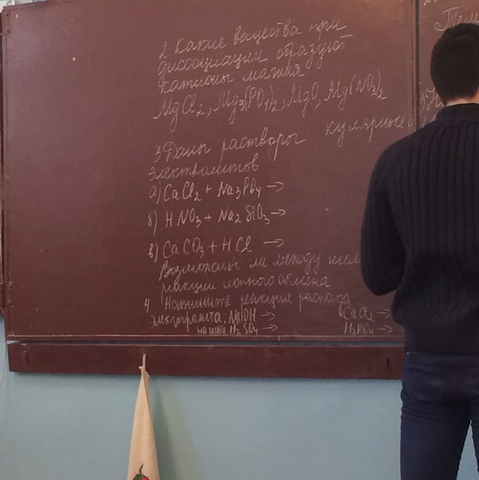 2 Какие вещества при
диссоциации образуют
катионы магния
MgCl₂, Mg₃(PO₄)₂, MgO, Mg(NO₃)₂
3 Даны растворы
электролитов
а) CaCl₂ + Na₃PO₄ →
б) HNO₃ + Na₂SiO₃ →
в) CaCO₃ + HCl →
Возможны ли между ними
реакции ионного обмена
4 Напишите реакцию распада
электролита: NaOH →
CaCl₂ →
H₃PO₄ →